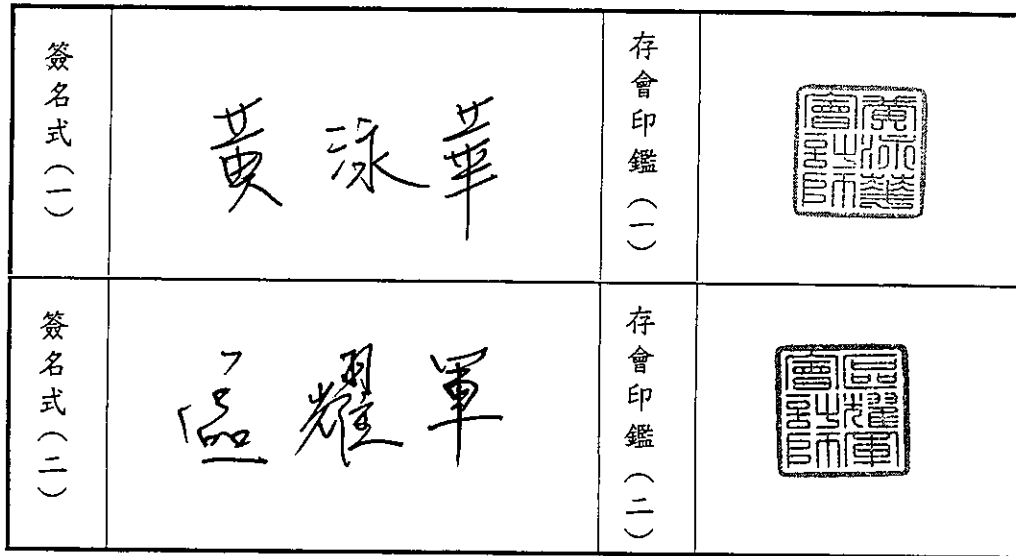 簽名式(一)
黃泳華
存會印鑑(一)
黃泳華會計師
簽名式(二)
區耀軍
存會印鑑(二)
區耀軍會計師